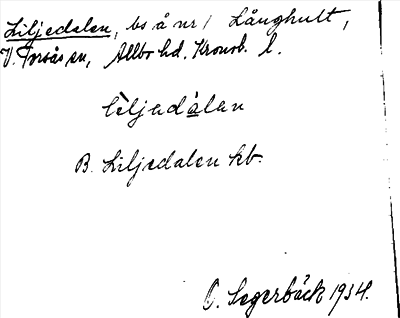 Liljedalen, bs å nr 1 Långhult,
V. Torsås sn, Allbo hd. Kronob. l.
lìljedàlen
B. Liljedalen hb.
O. Segerbäck 1934.